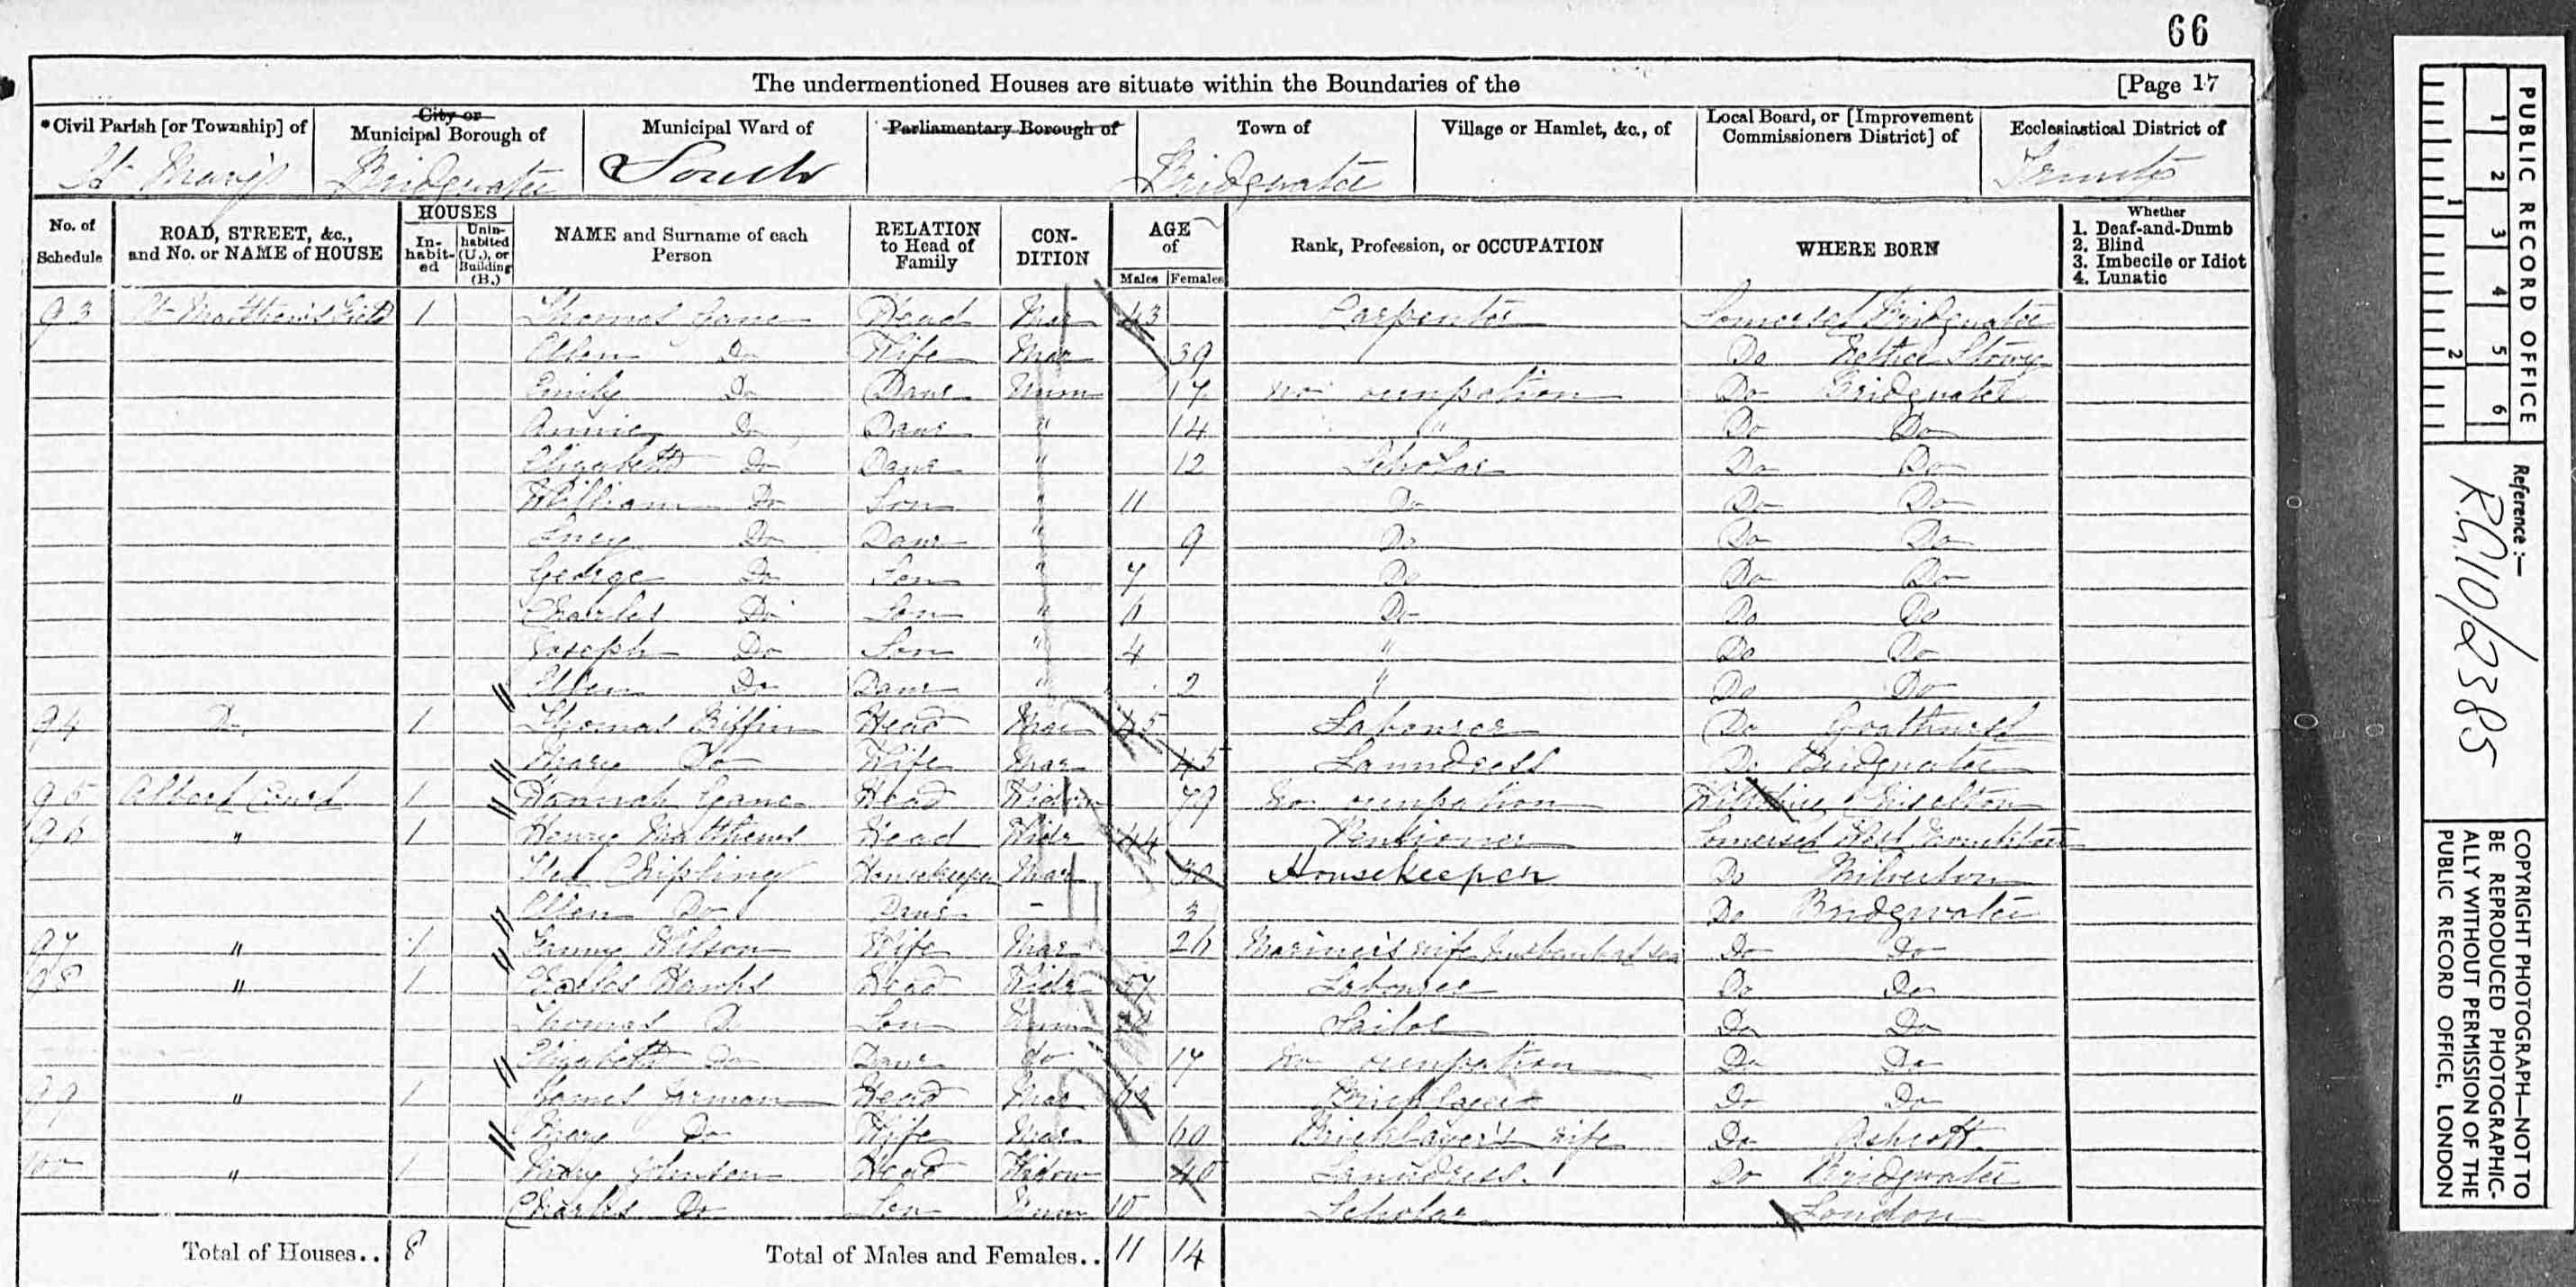 66
The undermentioned Houses are situate within the Boundaries of the [Page 17
*Civil Parish [or Township] of
City or Municipal Borough of
Municipal Ward of
Parliamentary Borough of
Town of
Village or Hamlet, &c., of
Local Board, or [Improvement Commissioners District] of
Ecclesiastical District of
St Mary's Bridgwater South Bridgwater Trinity
No. of Schedule
ROAD, STREET, &c., and No. or NAME of HOUSE
HOUSES
In-habit-ed
Unin-habited (U.), or Building (B.)
NAME and Surname of each Person
RELATION to Head of Family
CON-DITION
AGE of
Males Females
Rank, Profession, or OCCUPATION
WHERE BORN
Whether
1. Deaf-and-Dumb
2. Blind
3. Imbecile or Idiot
4. Lunatic
93 St Matthews Field 1 Thomas Gane Head Mar 43 Carpenter Somerset Bridgwater
Ellen Do Wife Mar 39 Do Nether Stowey
Emily Do Daur Unm 17 no occupation Do Bridgwater
Annie Do Daur " 14 " Do Do
Elizabeth Do Daur " 12 Scholar Do Do
William Do Son " 11 Do Do Do
Lucy Do Daur " 9 Do Do Do
George Do Son " 7 Do Do Do
Charles Do Son " 6 Do Do Do
Joseph Do Son " 4 " Do Do
Ellen Do Daur " 2 " Do Do
94 Do 1 Thomas Biffin Head Mar 45 Labourer Do Goathurst
Mary Do Wife Mar 45 Laundress Do Bridgwater
95 Albert Court 1 Hannah Gane Head Widow 79 no occupation Wiltshire
96 " 1 Henry Matthews Head Widr 44 Pensioner Somerset West Monckton
Chipling Housekeeper Mar 30 Housekeeper Do Milverton
Ellen Do Daur - 3 Do Bridgwater
97 " 1 Fanny Wilson Wife Mar 26 Mariner's wife husband at sea Do Do
98 " 1 Charles Hawks Head Widr 57 Labourer Do Do
Thomas Do Son Unm Sailor Do Do
Elizabeth Do Daur do 17 no occupation Do Do
99 " 1 James Jarman Head Mar 62 Bricklayer Do Do
Mary Do Wife Mar 60 Bricklayer's wife Do Ashcott
100 " 1 Mary Johnson Head Widow 40 Laundress Do Bridgwater
Charles Do Son Unm 10 Scholar London
Total of Houses.. 8 Total of Males and Females.. 11 14
PUBLIC RECORD OFFICE
1 2 3 4 5 6
1 2
Reference:-
R.G.10/2385
COPYRIGHT PHOTOGRAPH—NOT TO
BE REPRODUCED PHOTOGRAPHIC-
ALLY WITHOUT PERMISSION OF THE
PUBLIC RECORD OFFICE, LONDON